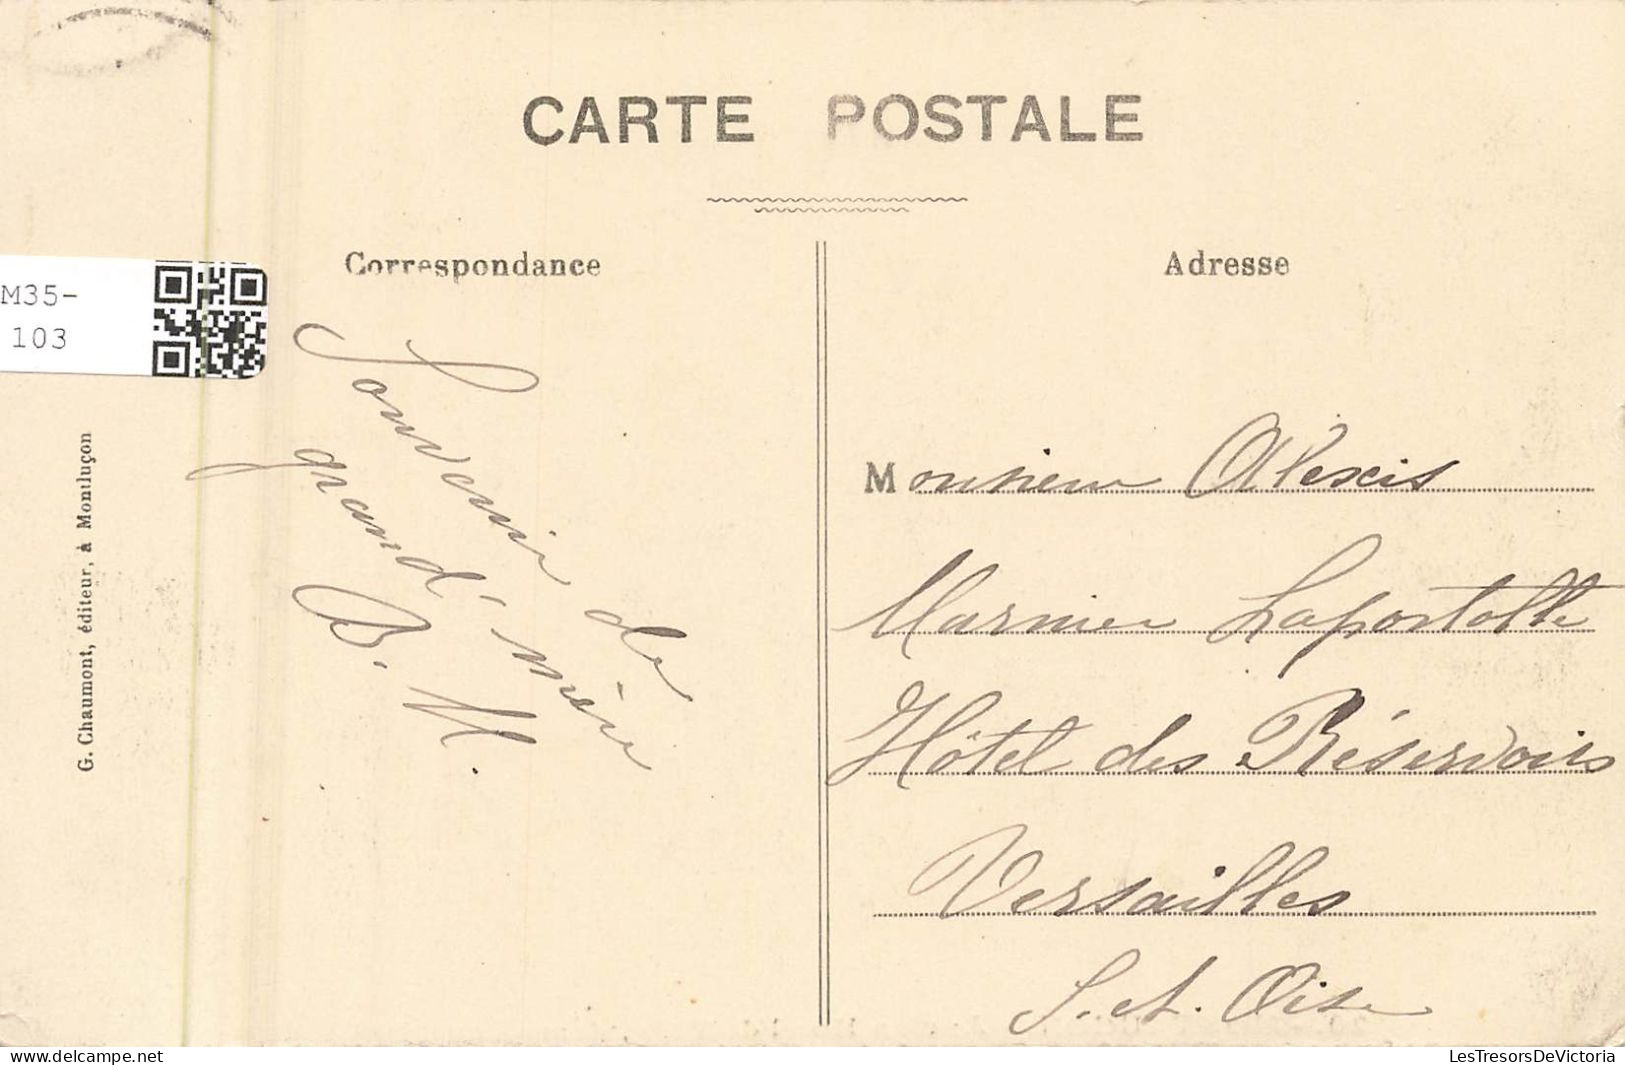 CARTE POSTALE
Correspondance
Adresse
M35-
103
G. Chaumont, éditeur, à Montluçon
Souvenir de
grand'mère
B. M.
Monsieur Alexis
Marnier Lapostolle
Hôtel des Réservoirs
Versailles
S. et Oise
www.delcampe.net
LesTresorsDeVictoria